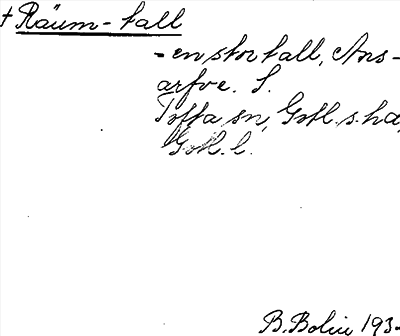 † Räum-tall
- en stor tall, Ans-
arfve. S.
Toffa sn, Gotl. s. hd,
Gotl. l.
B. Bolin 193-